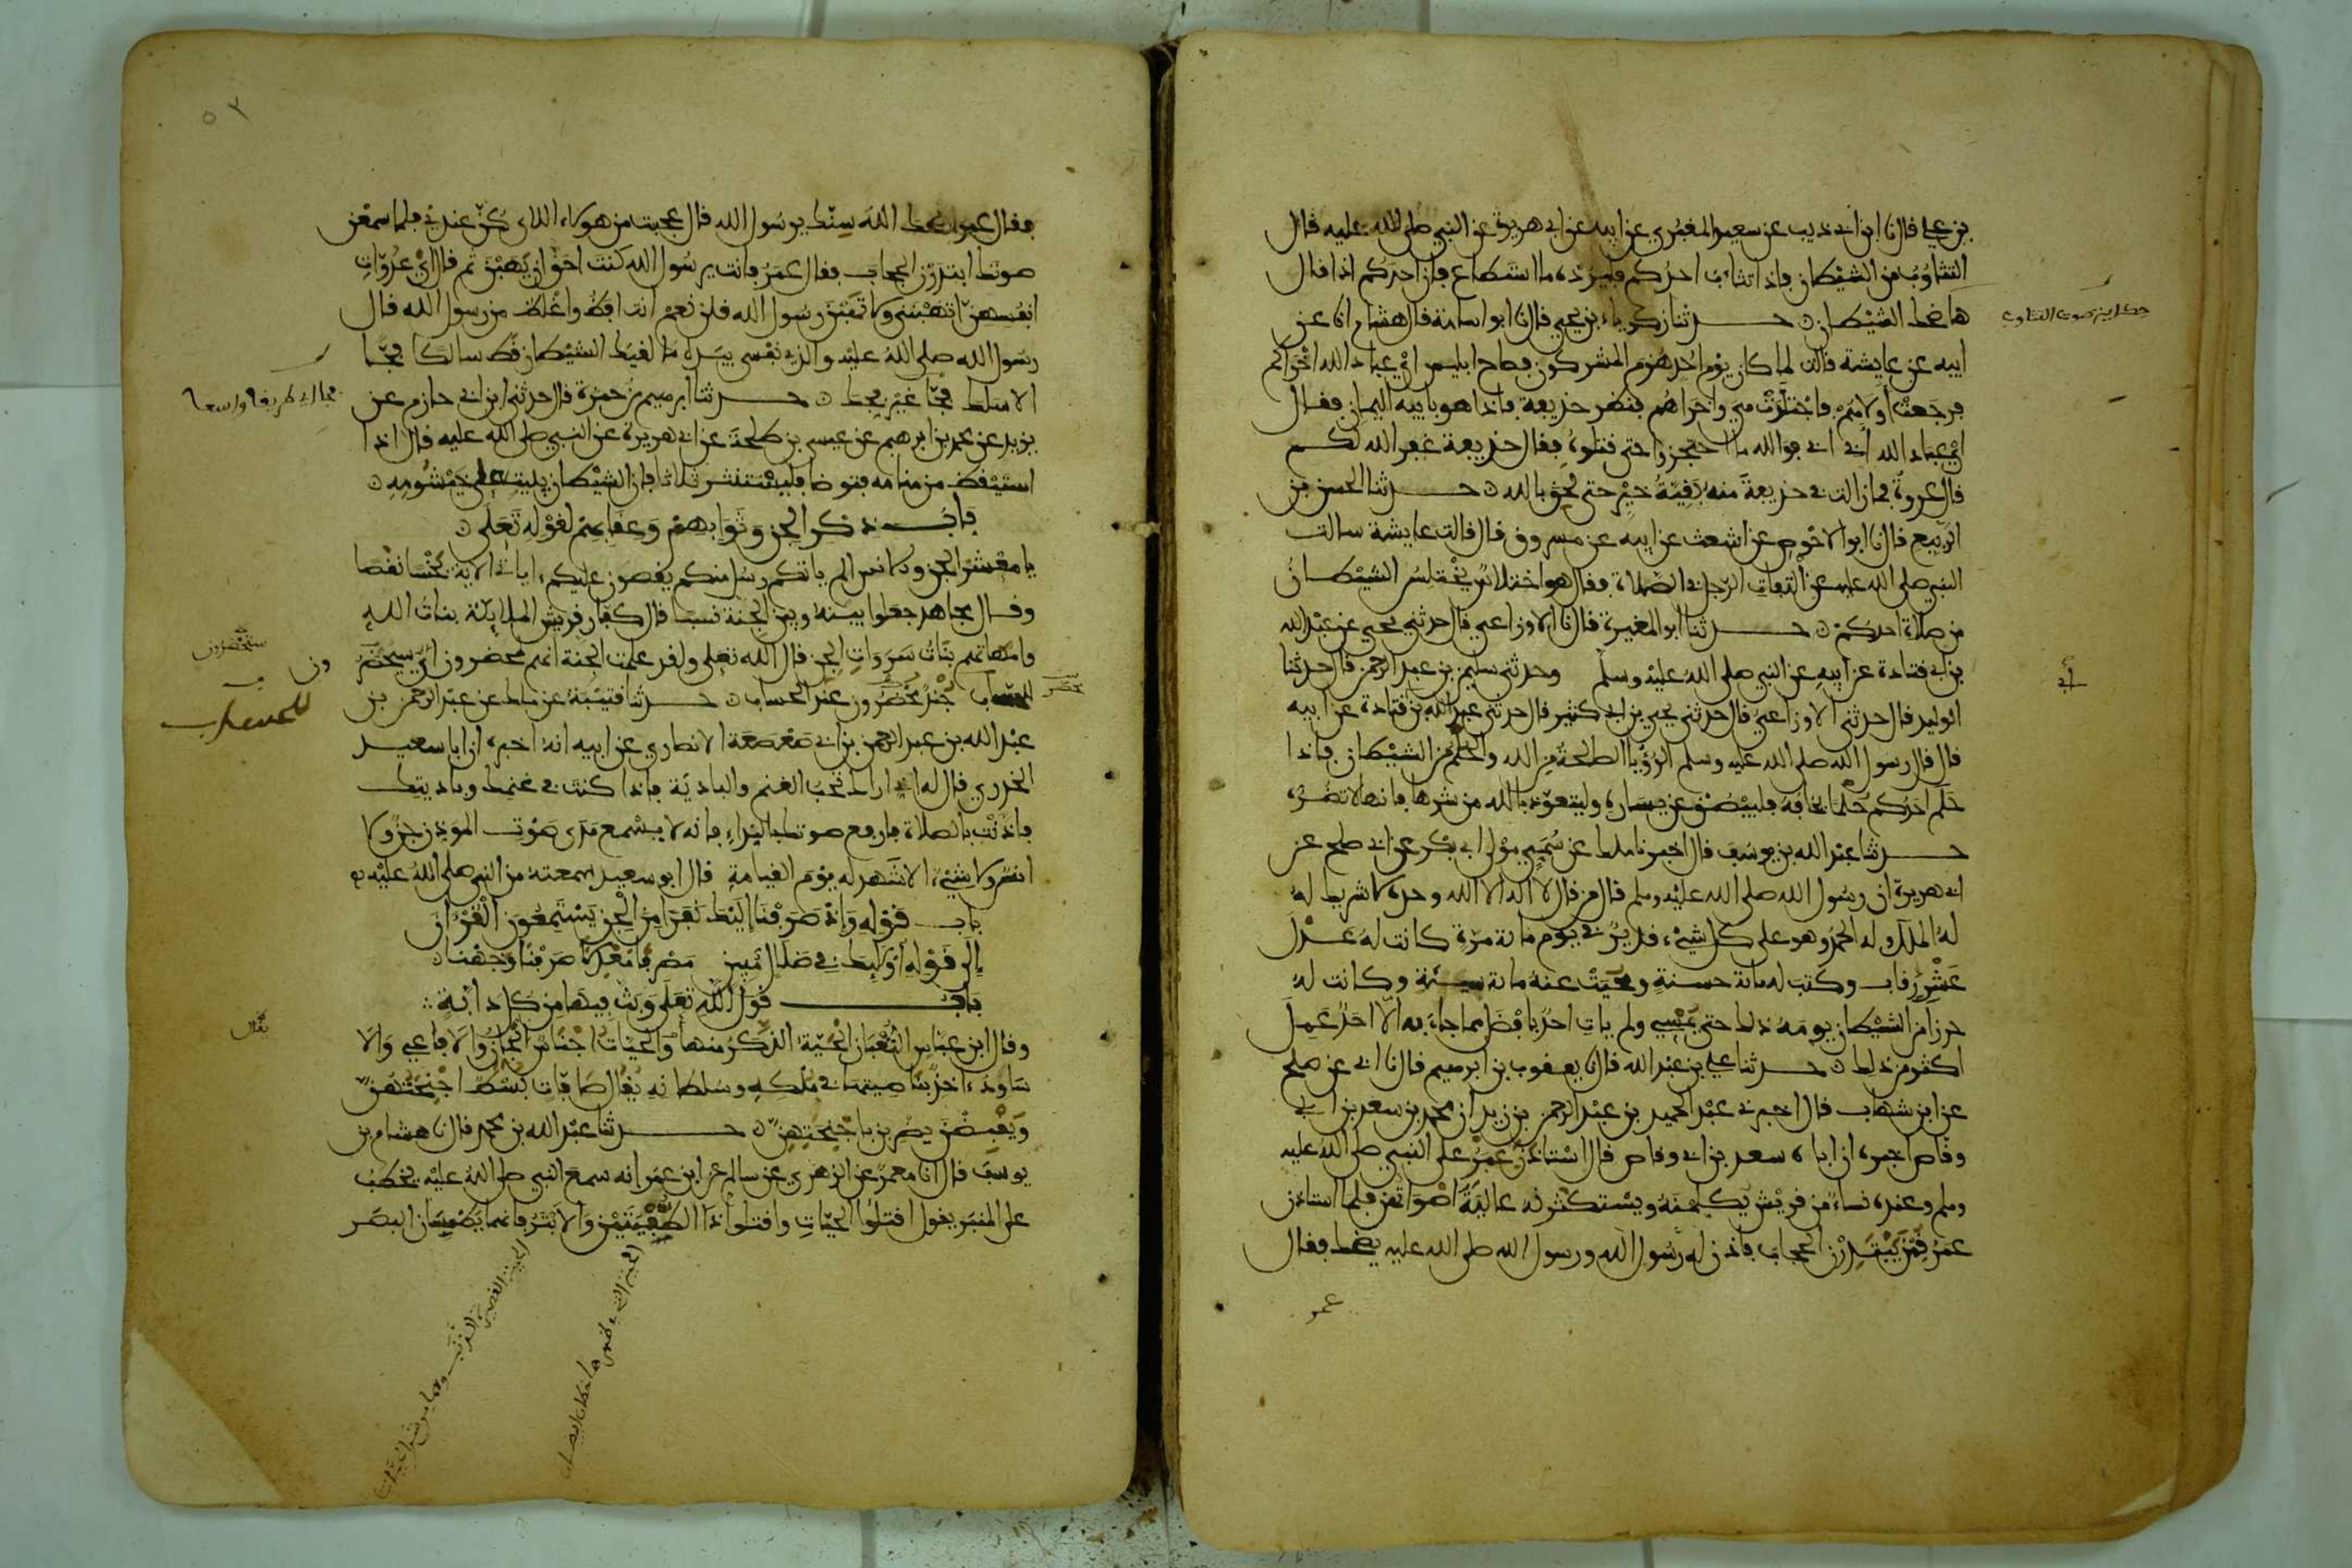 بن علي قال نا ابن ابي ذيب عن سعيد المقبري عن ابيه عن ابي هريرة عن النبي صلى الله عليه قال
التثاوب من الشيطان فاذا تثاءب احدكم فليرده ما استطاع فان احدكم اذا قال
ها ضحك الشيطان حدثنا زكرياء بن يحيى قال نا ابو اسامة قال هشام انا عن
ابيه عن عايشة قالت لما كان يوم احد هزم المشركون فصاح ابليس اي عباد الله اخراكم
فرجعت اولاهم فاجتلدت هي واخراهم فنظر حذيفة فاذا هو بابيه اليمان فقال
اي عباد الله ابي ابي فوالله ما احتجزوا حتى قتلوه فقال حذيفة غفر الله لكم
قال عروة فما زالت في حذيفة منه بقية خير حتى لحق بالله حدثنا الحسن بن
الربيع قال نا ابو الاحوص عن اشعث عن ابيه عن مسروق قال قالت عايشة سالت
النبي صلى الله عليه عن التفات الرجل في الصلاة فقال هو اختلاس يختلس الشيطان
من صلاة احدكم حدثنا ابو المغيرة قال نا الاوزاعي قال حدثني يحيى عن عبد الله
بن ابي قتادة عن ابيه عن النبي صلى الله عليه وسلم وحدثني سليمن بن عبد الرحمن قال حدثنا
الوليد قال حدثني الاوزاعي قال حدثني يحيى بن ابي كثير قال حدثني عبد الله بن قتادة عن ابيه
قال قال رسول الله صلى الله عليه وسلم الرؤيا الصالحة من الله والحلم من الشيطان فاذا
حلم احدكم حلما يخافه فليبصق عن يساره وليتعوذ بالله من شرها فانها لا تضره
حدثنا عبد الله بن يوسف قال اخبرنا ملك عن سمي مولى ابي بكر عن ابي صلح عن
ابي هريرة ان رسول الله صلى الله عليه وسلم قال من قال لا اله الا الله وحده لا شريك له
له الملك وله الحمد وهو على كل شيء قدير في يوم ماية مرة كانت له عدل
عشر رقاب وكتب له ماية حسنة ومحيت عنه ماية سيئة وكانت له
حرزا من الشيطان يومه ذلك حتى يمسي ولم يات احد بافضل مما جاء به الا احد عمل
اكثر من ذلك حدثنا علي بن عبد الله قال نا يعقوب بن ابرهيم قال نا ابي عن صلح
عن ابن شهاب قال اخبرني عبد الحميد بن عبد الرحمن بن زيد ان محمد بن سعد بن ابي
وقاص اخبره ان اباه سعد بن ابي وقاص قال استاذن عمر على النبي صلى الله عليه
وسلم وعنده نساء من قريش يكلمنه ويستكثرنه عالية اصواتهن فلما استاذن
عمر قمن يبتدرن الحجاب فاذن له رسول الله ورسول الله صلى الله عليه يضحك فقال
عمر
حكاية صوت التثاوب
٥٢
فقال عمر اضحك الله سنك يرسول الله قال عجبت من هولاء اللاي كن عندي فلما سمعن
صوتك ابتدرن الحجاب فقال عمر فانت يرسول الله كنت احق ان يهبن ثم قال اي عدوات
انفسهن اتهبنني ولا تهبن رسول الله قلن نعم انت افظ واغلظ من رسول الله قال
رسول الله صلى الله عليه والذي نفسي بيده ما لقيك الشيطان قط سالكا فجا
الا سلك فجا غير فجك حدثنا ابرهيم بن حمزة قال حدثني ابن ابي حازم عن
يزيد عن محمد بن ابرهيم عن عيسى بن طلحة عن ابي هريرة عن النبي صلى الله عليه قال اذا
استيقظ من منامه فتوضا فليستنثر ثلاثا فان الشيطان يبيت على خيشومه
باب ذكر الجن وثوابهم وعقابهم لقوله تعلى
يا معشر الجن والانس الم ياتكم رسل منكم يقصون عليكم اياتي الاية بخسا نقصا
وقال مجاهد جعلوا بينه وبين الجنة نسبا قال كفار قريش الملايكة بنات الله
وامهاتهم بنات سروات الجن قال الله تعلى ولقد علمت الجنة انهم لمحضرون اي سيحضر
للحساب جند محضرون عند الحساب حدثنا قتيبة عن ملك عن عبد الرحمن بن
عبد الله بن عبد الرحمن بن ابي صعصعة الانصاري عن ابيه انه اخبره ان ابا سعيد
الخدري قال له اني اراك تحب الغنم والبادية فاذا كنت في غنمك وباديتك
فاذنت بالصلاة فارفع صوتك بالنداء فانه لا يسمع مدى صوت الموذن جن ولا
انس ولا شيء الا شهد له يوم القيامة قال ابو سعيد سمعته من النبي صلى الله عليه
باب قوله واذ صرفنا اليك نفرا من الجن يستمعون القرءان
الى قوله اوليك في ضلال مبين مصرفا معدلا صرفنا وجهنا
باب قول الله تعلى وبث فيها من كل دابة
وقال ابن عباس الثعبان الحية الذكر منها والحيات اجناس الجان والافاعي والا
ساود اخذ بناصيتها في ملكه وسلطانه يقال صافات بسط اجنحتهن
ويقبضن يضربن باجنحتهن حدثنا عبد الله بن محمد قال نا هشام بن
يوسف قال انا معمر عن الزهري عن سالم عن ابن عمر انه سمع النبي صلى الله عليه يخطب
على المنبر يقول اقتلوا الحيات واقتلوا ذا الطفيتين والابتر فانهما يطمسان البصر
فجا اي طريقا واسعا
ستحضرون
ون
للحساب
يقال